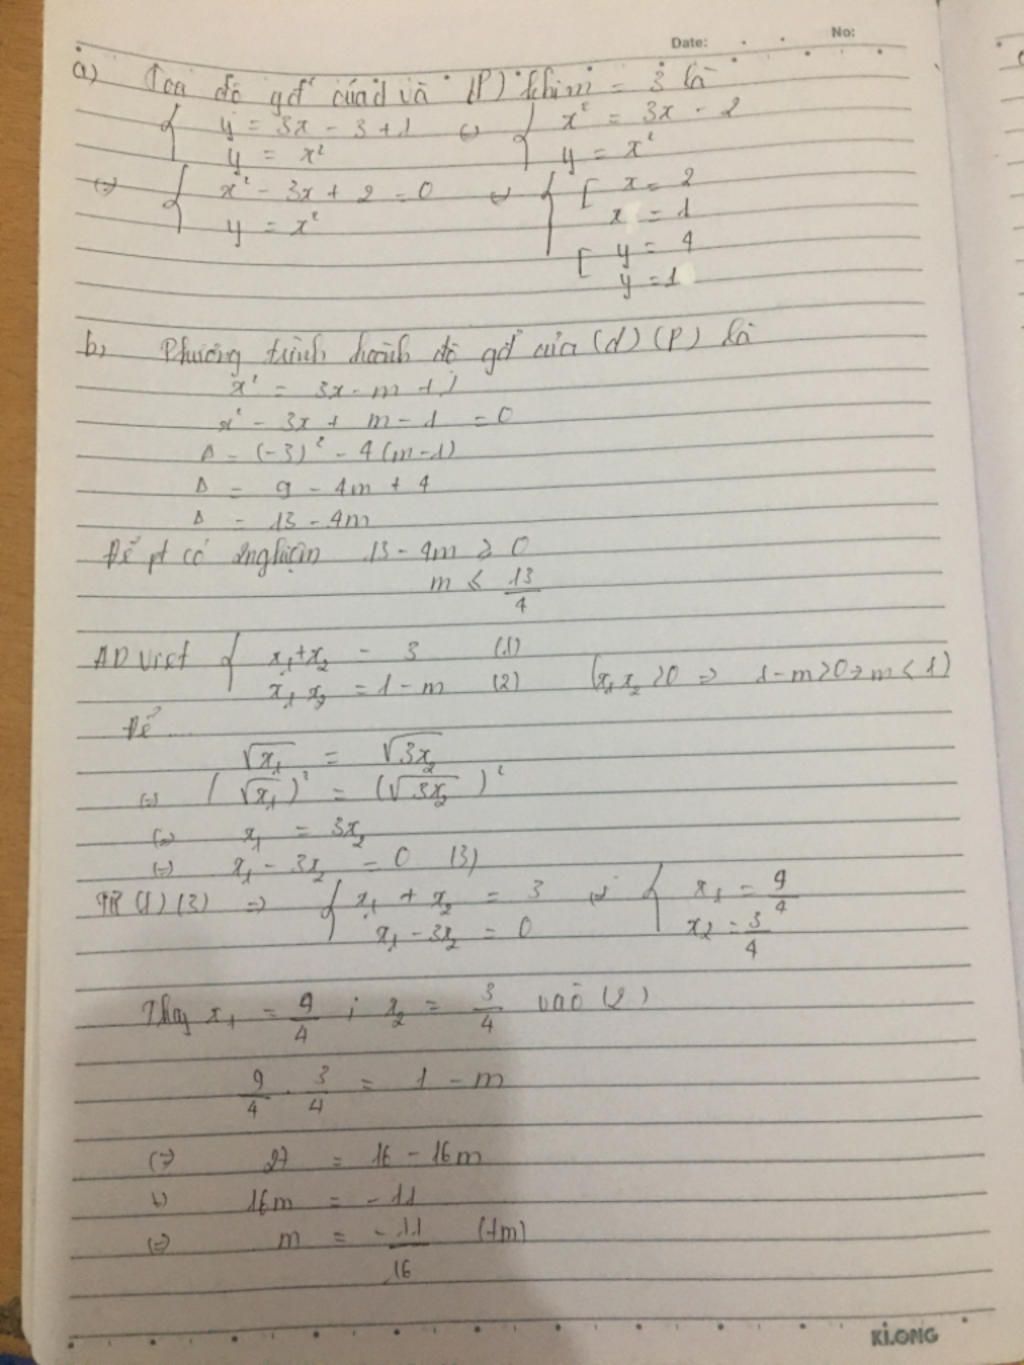 Date: No:
a) Toạ độ gđ của d và (P) khi m = 3 là
{ y = 3x - 3 + 1 ⇔ { x² = 3x - 2
y = x² y = x²
⇔ { x² - 3x + 2 = 0 ⇔ { [ x = 2
y = x² x = 1
[ y = 4
y = 1
b, Phương trình hoành độ gđ của (d) (P) là
x² = 3x - m + 1
x² - 3x + m - 1 = 0
Δ = (-3)² - 4(m-1)
Δ = 9 - 4m + 4
Δ = 13 - 4m
Để pt có 2 nghiệm 13 - 4m ≥ 0
m ≤ 13/4
AD Viet { x₁+x₂ = 3 (1)
x₁ x₂ = 1 - m (2) (x₁ x₂ > 0 => 1 - m > 0 => m < 1)
Để ...
√x₁ = √3x₂
(=) (√x₁)² = (√3x₂)²
(=) x₁ = 3x₂
(=) x₁ - 3x₂ = 0 (3)
(1) (3) => { x₁ + x₂ = 3 ⇔ { x₁ = 9/4
x₁ - 3x₂ = 0 x₂ = 3/4
Thay x₁ = 9/4 ; x₂ = 3/4 vào (2)
9/4 . 3/4 = 1 - m
(=) 27 = 16 - 16m
(=) 16m = -11
(=) m = -11/16 (tm)
KLONG